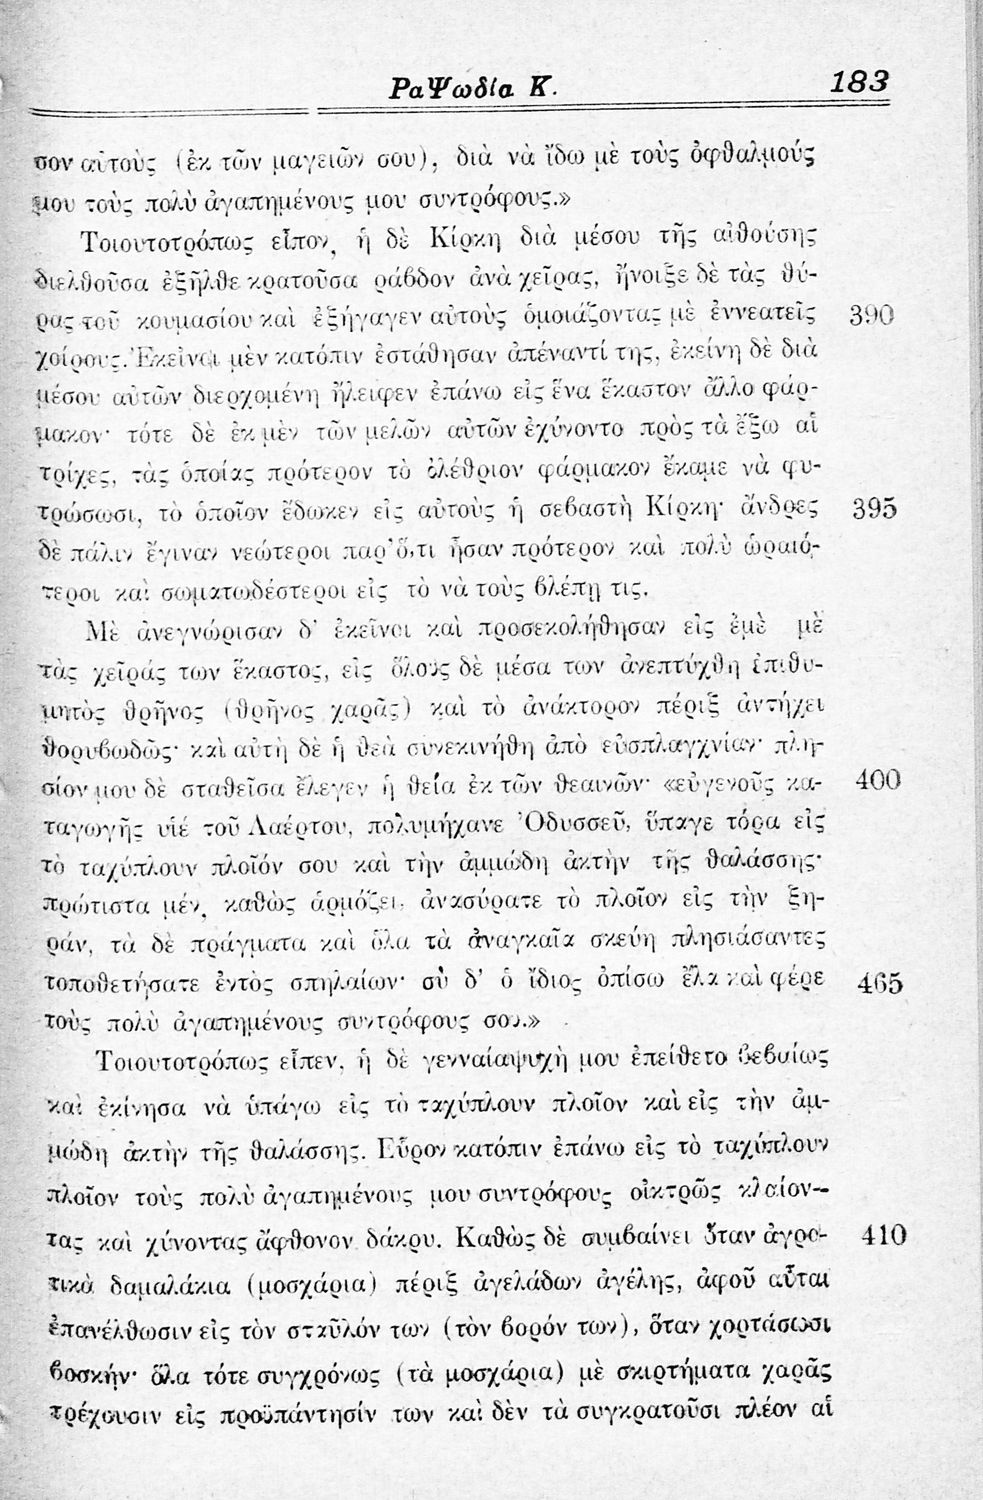 Ραψωδία Κ. 183
σον αὐτοὺς (ἐκ τῶν μαγειῶν σου), διὰ νὰ ἴδω μὲ τοὺς ὀφθαλμούς
μου τοὺς πολὺ ἀγαπημένους μου συντρόφους.»
Τοιουτοτρόπως εἶπον, ἡ δὲ Κίρκη διὰ μέσου τῆς αἰθούσης
διελθοῦσα ἐξῆλθε κρατοῦσα ράβδον ἀνὰ χεῖρας, ἤνοιξε δὲ τὰς θύ-
ρας τοῦ κουμασίου καὶ ἐξήγαγεν αὐτοὺς ὁμοιάζοντας μὲ ἐννεατεῖς 390
χοίρους. Ἐκεῖνοι μὲν κατόπιν ἐστάθησαν ἀπέναντί της, ἐκείνη δὲ διὰ
μέσου αὐτῶν διερχομένη ἤλειφεν ἐπάνω εἰς ἕνα ἕκαστον ἄλλο φάρ-
μακον· τότε δὲ ἐκ μὲν τῶν μελῶν αὐτῶν ἐχύνοντο πρὸς τὰ ἔξω αἱ
τρίχες, τὰς ὁποίας πρότερον τὸ ὀλέθριον φάρμακον ἔκαμε νὰ φυ-
τρώσωσι, τὸ ὁποῖον ἔδωκεν εἰς αὐτοὺς ἡ σεβαστὴ Κίρκη· ἄνδρες 395
δὲ πάλιν ἔγιναν νεώτεροι παρ' ὅ,τι ἦσαν πρότερον καὶ πολὺ ὡραιό-
τεροι καὶ σωματωδέστεροι εἰς τὸ νὰ τοὺς βλέπῃ τις.
Μὲ ἀνεγνώρισαν δ' ἐκεῖνοι καὶ προσεκολήθησαν εἰς ἐμὲ μὲ
τὰς χεῖράς των ἕκαστος, εἰς ὅλους δὲ μέσα των ἀνεπτύχθη ἐπιθυ-
μητὸς θρῆνος (θρῆνος χαρᾶς) καὶ τὸ ἀνάκτορον πέριξ ἀντήχει
θορυβωδῶς· καὶ αὐτὴ δὲ ἡ θεὰ συνεκινήθη ἀπὸ εὐσπλαγχνίαν· πλη-
σίον μου δὲ σταθεῖσα ἔλεγεν ἡ θεία ἐκ τῶν θεαινῶν· «εὐγενοῦς κα- 400
ταγωγῆς υἱέ τοῦ Λαέρτου, πολυμήχανε Ὀδυσσεῦ, ὕπαγε τόρα εἰς
τὸ ταχύπλουν πλοῖόν σου καὶ τὴν ἀμμώδη ἀκτὴν τῆς θαλάσσης·
πρώτιστα μέν, καθὼς ἁρμόζει, ἀνασύρατε τὸ πλοῖον εἰς τὴν ξη-
ράν, τὰ δὲ πράγματα καὶ ὅλα τὰ ἀναγκαῖα σκεύη πλησιάσαντες
τοποθετήσατε ἐντὸς σπηλαίων· σὺ δ' ὁ ἴδιος ὀπίσω ἔλα καὶ φέρε 465
τοὺς πολὺ ἀγαπημένους συντρόφους σου.»
Τοιουτοτρόπως εἶπεν, ἡ δὲ γενναίαψυχή μου ἐπείθετο βεβαίως
καὶ ἐκίνησα νὰ ὑπάγω εἰς τὸ ταχύπλουν πλοῖον καὶ εἰς τὴν ἀμ-
μώδη ἀκτὴν τῆς θαλάσσης. Εὗρον κατόπιν ἐπάνω εἰς τὸ ταχύπλουν
πλοῖον τοὺς πολὺ ἀγαπημένους μου συντρόφους οἰκτρῶς κλαίον-
τας καὶ χύνοντας ἄφθονον δάκρυ. Καθὼς δὲ συμβαίνει ὅταν ἀγρο- 410
τικὰ δαμαλάκια (μοσχάρια) πέριξ ἀγελάδων ἀγέλης, ἀφοῦ αὗται
ἐπανέλθωσιν εἰς τὸν σταῦλόν των (τὸν βορόν των), ὅταν χορτάσωσι
βοσκήν· ὅλα τότε συγχρόνως (τὰ μοσχάρια) μὲ σκιρτήματα χαρᾶς
τρέχουσιν εἰς προϋπάντησίν των καὶ δὲν τὰ συγκρατοῦσι πλέον αἱ